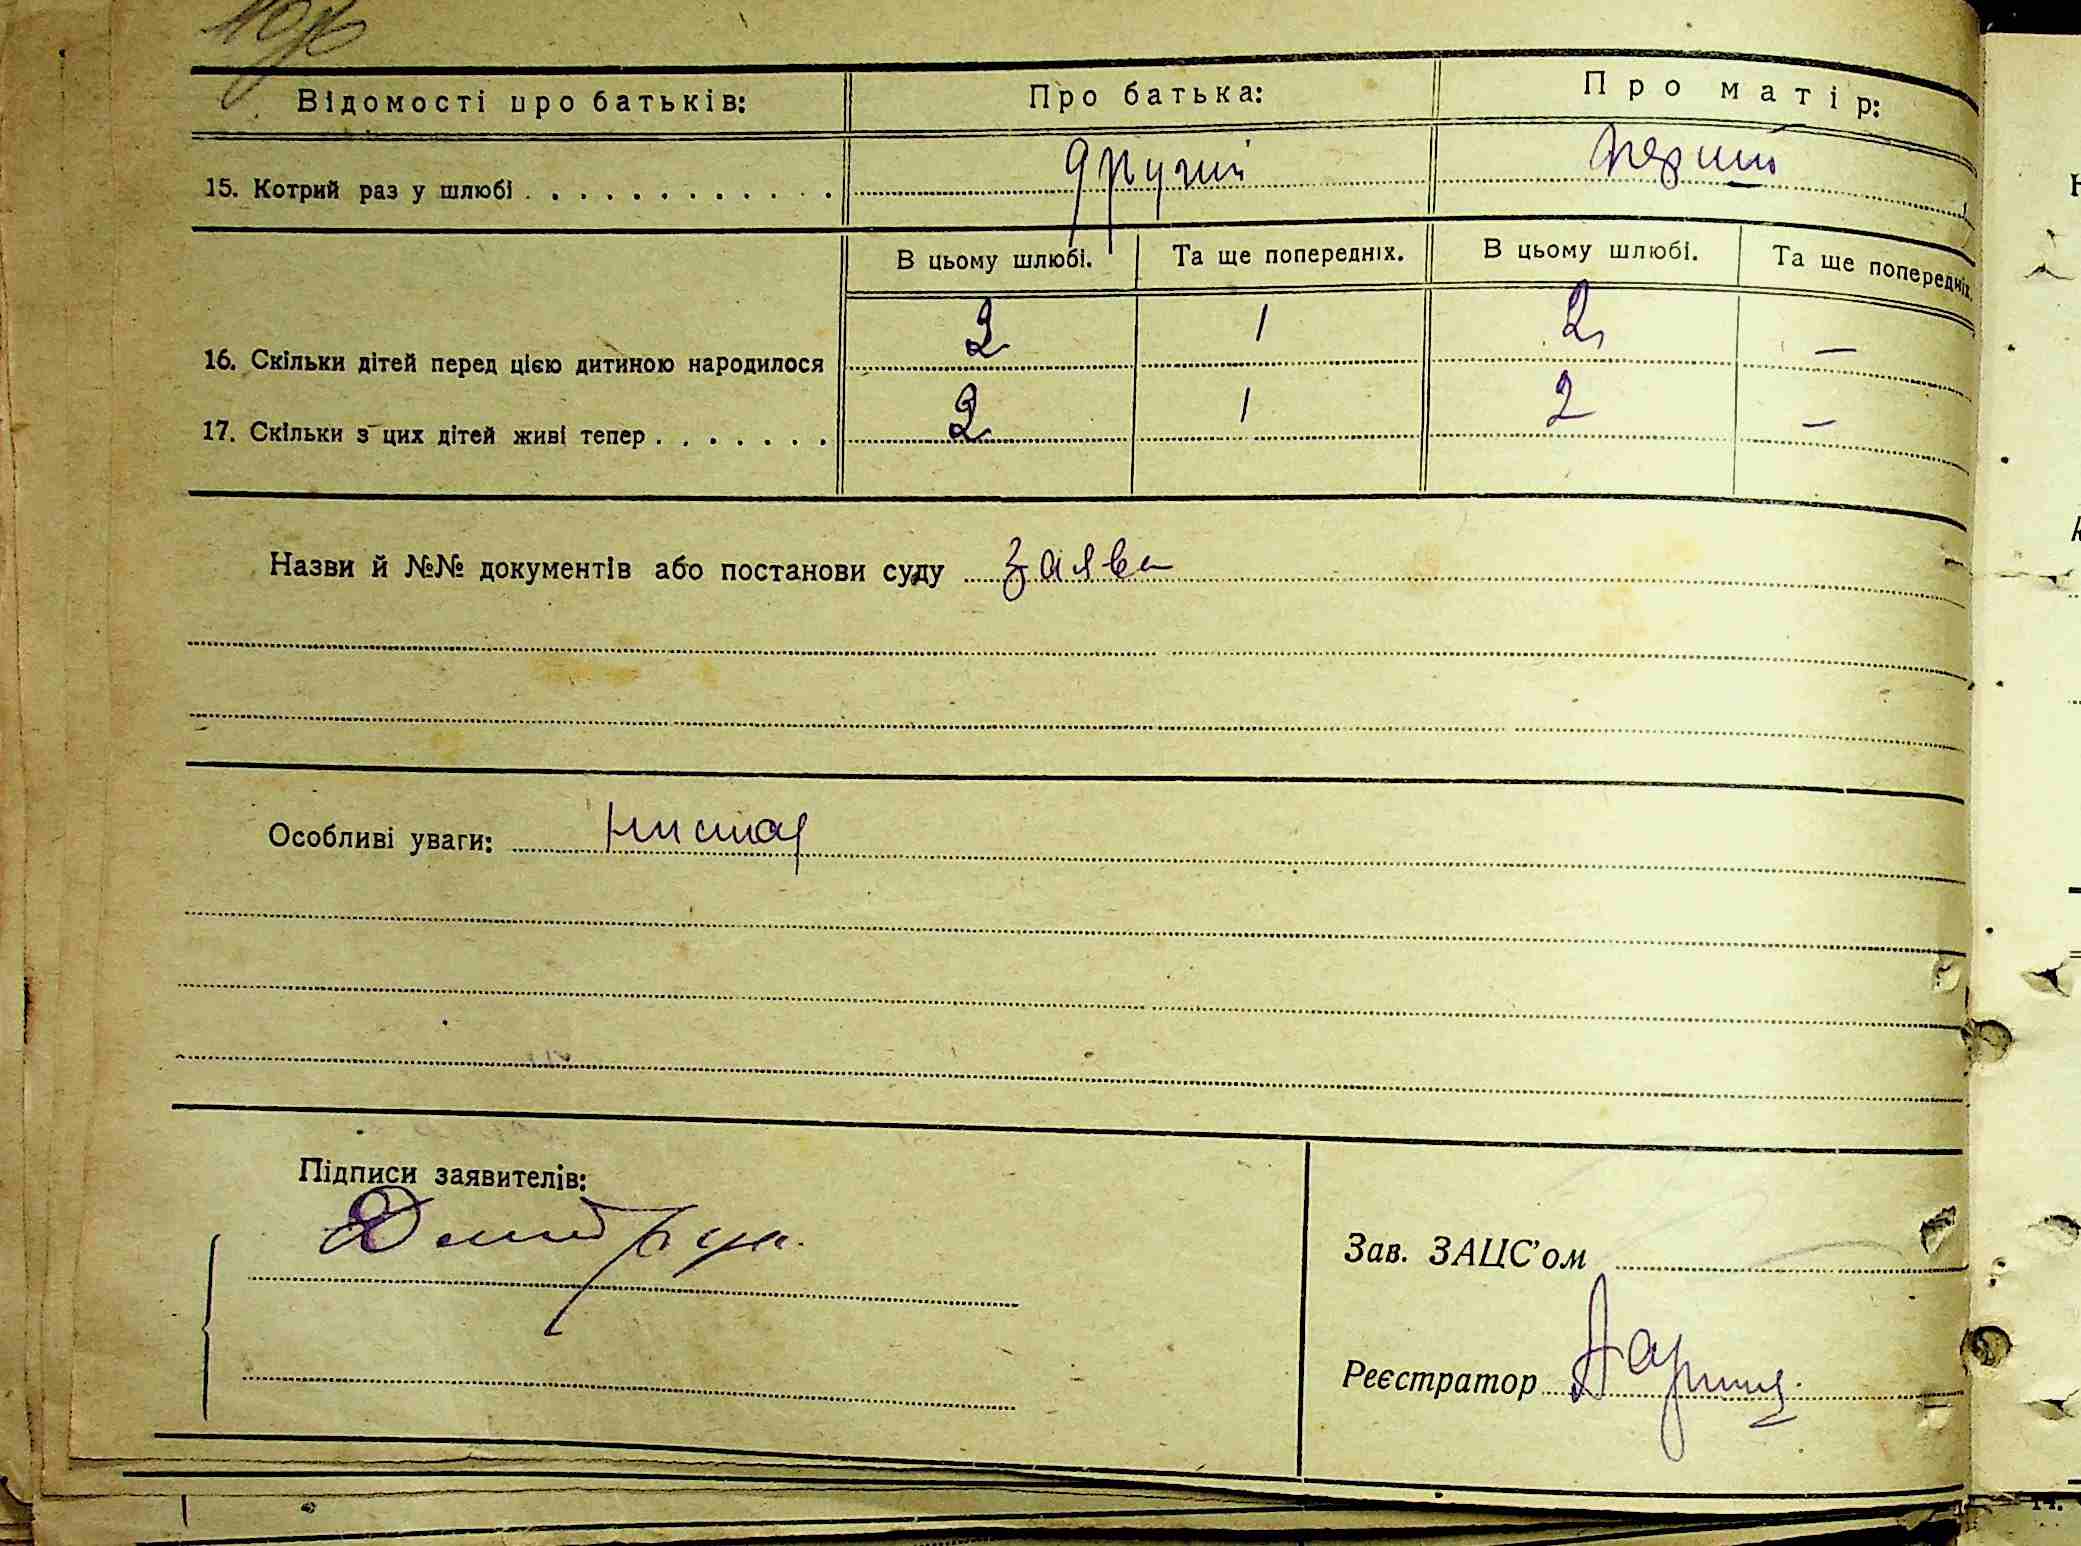 Відомості про батьків: Про батька: Про матір:
15. Котрий раз у шлюбі другий перший
В цьому шлюбі. Та ще попередніх. В цьому шлюбі. Та ще попередніх.
16. Скільки дітей перед цією дитиною народилося 2 1 2 —
17. Скільки з цих дітей живі тепер 2 1 2 —
Назви й №№ документів або постанови суду заява
Особливі уваги:
Підписи заявителів:
Зав. ЗАЦС'ом
Реєстратор